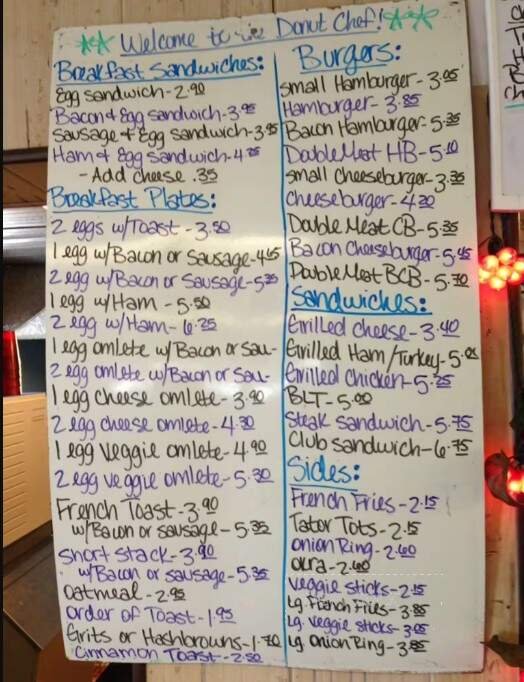 Welcome to the Donut Chef!
Breakfast Sandwiches:
Egg sandwich - 2.90
Bacon & Egg sandwich - 3.95
Sausage & Egg sandwich - 3.95
Ham & Egg sandwich - 4.25
- Add cheese .35
Breakfast Plates:
2 eggs w/Toast - 3.50
1 egg w/Bacon or Sausage - 4.45
2 egg w/Bacon or Sausage - 5.35
1 egg w/Ham - 5.50
2 egg w/Ham - 6.25
1 egg omlete w/Bacon or Sau-
2 egg omlete w/Bacon or Sau-
1 egg cheese omlete - 3.90
2 egg cheese omlete - 4.30
1 egg veggie omlete - 4.90
2 egg veggie omlete - 5.30
French Toast - 3.90
w/Bacon or sausage - 5.35
Short stack - 3.90
w/Bacon or sausage - 5.35
Oatmeal - 2.95
order of Toast - 1.95
Grits or Hashbrowns - 1.70
Cinnamon Toast - 2.50
Burgers:
small Hamburger - 3.05
Hamburger - 3.85
Bacon Hamburger - 5.35
Double Meat HB - 5.10
small Cheeseburger - 3.35
Cheeseburger - 4.20
Double Meat CB - 5.35
Bacon Cheeseburger - 5.45
Double Meat BCB - 5.70
Sandwiches:
Grilled cheese - 3.40
Grilled Ham/Turkey - 5.05
Grilled Chicken - 5.25
BLT - 5.00
Steak sandwich - 5.75
Club sandwich - 6.75
Sides:
French Fries - 2.15
Tator Tots - 2.15
Onion Ring - 2.60
Okra - 2.60
Veggie sticks - 2.15
Lg. French Fries - 3.85
Lg. Veggie sticks - 3.05
Lg. Onion Ring - 3.85